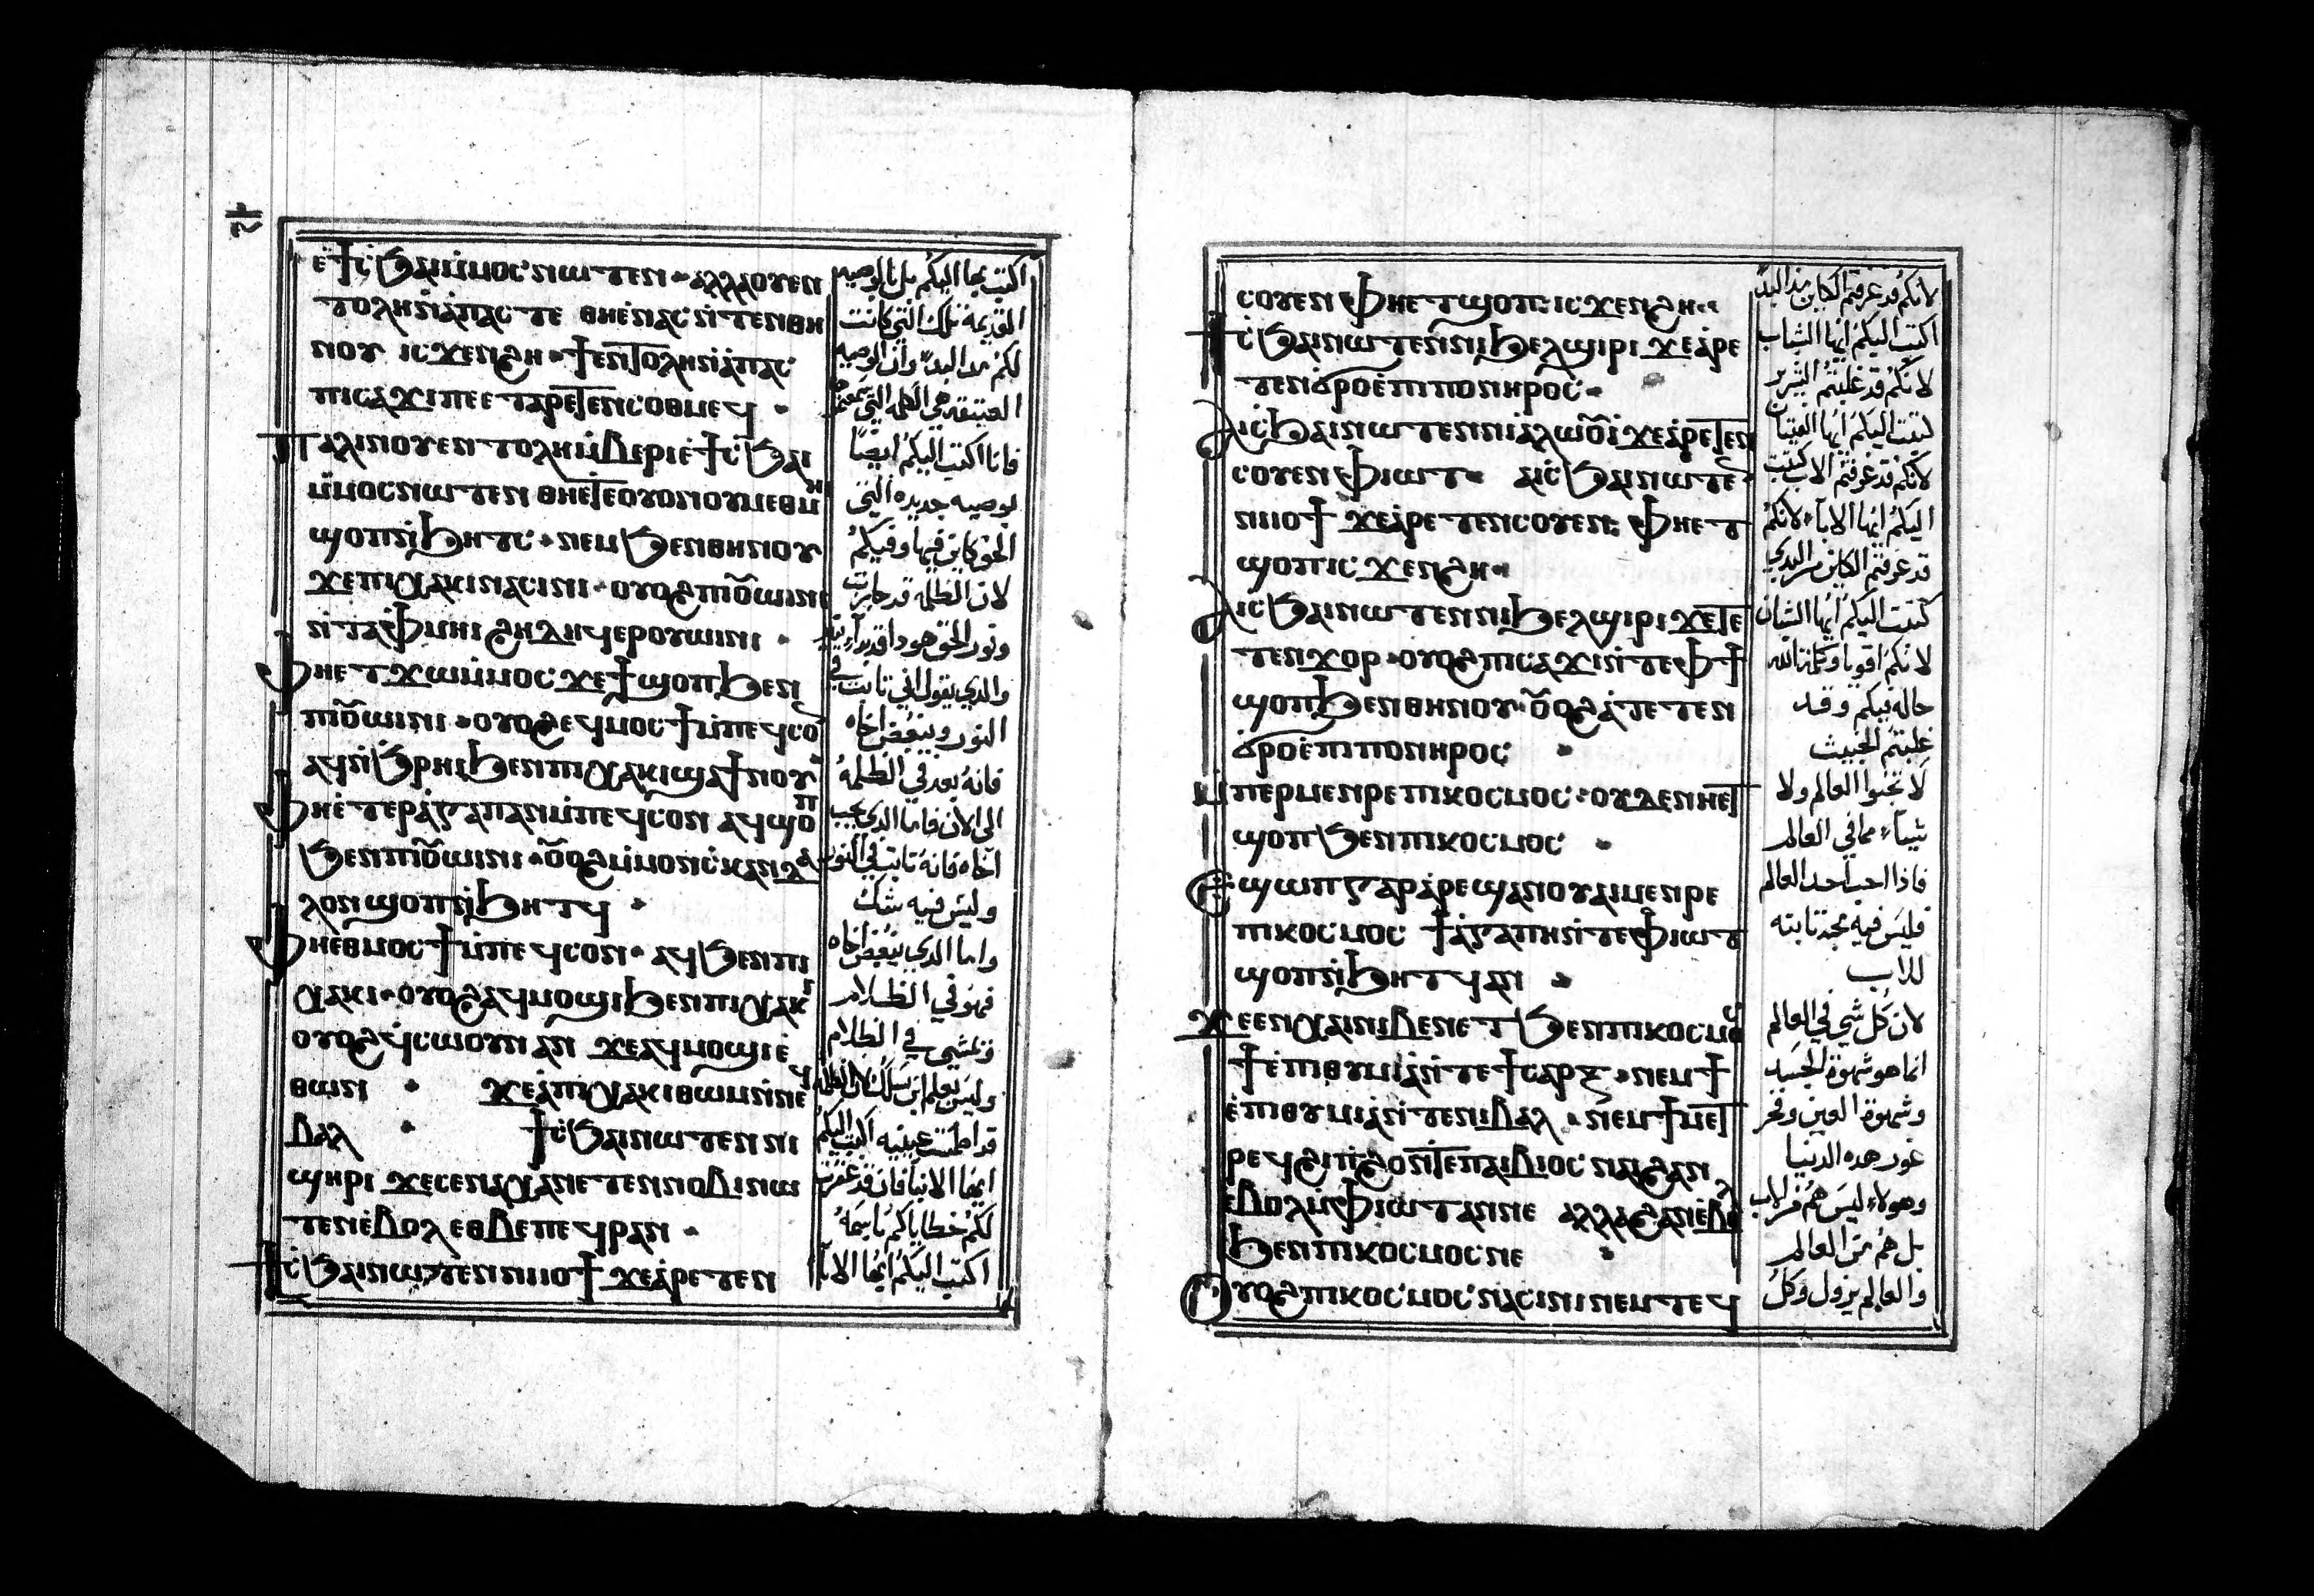 ⲉ̇ϯⲥ̇ϧⲁⲓⲙ̇ⲙⲟⲥ ⲛⲱⲧⲉⲛ · ⲁⲗⲗⲁⲟⲩⲉⲛ
ⲧⲟⲗⲏⲛ̇ⲁ̇ⲡⲁⲥ ⲧⲉ ⲑⲏⲉ̇ⲛⲁⲥⲛ̇ⲧⲉⲛⲑⲏ
ⲛⲟⲩ ⲓⲥϫⲉⲛϩⲏ · ϯⲉⲛⲧⲟⲗⲏⲛ̇ⲁ̇ⲡⲁⲥ
ⲡⲓⲥⲁϫⲓⲡⲉ ⲉⲧⲁⲣⲉⲧⲉⲛⲥⲟⲑⲙⲉϥ ·
ⲡⲁⲗⲓⲛⲟⲩⲉⲛⲧⲟⲗⲏⲙ̇ⲃⲉⲣⲓⲉ̇ϯⲥ̇ϧⲁⲓ
ⲙ̇ⲙⲟⲥⲛⲱⲧⲉⲛ ⲑⲏⲉⲧⲉⲟⲩⲟⲛⲟⲩⲙⲉⲑⲙⲏⲓ
ϣⲟⲡⲛ̇ϧⲏⲧⲥ · ⲛⲉⲙϧⲉⲛⲑⲏⲛⲟⲩ
ϫⲉⲡⲓⲭⲁⲕⲓⲛⲁⲥⲓⲛⲓ · ⲟⲩⲟϩⲡⲓⲟⲩⲱⲓⲛⲓ
ⲛ̇ⲧⲁⲫⲙⲏⲓ ϩⲏⲇⲏϥⲉⲣⲟⲩⲱⲓⲛⲓ ·
ⲫⲏⲉⲧϫⲱⲙ̇ⲙⲟⲥ ϫⲉϯϣⲟⲡϧⲉⲛ
ⲡⲓⲟⲩⲱⲓⲛⲓ · ⲟⲩⲟϩⲉϥⲙⲟⲥϯⲙ̇ⲡⲉϥⲥⲟⲛ
ⲁϥⲛ̇ϧⲣⲏⲓϧⲉⲛⲡⲓⲭⲁⲕⲓϣⲁϯⲛⲟⲩ
ⲫⲏⲉ̇ⲧⲉⲣⲁ̇ⲅⲁⲡⲁⲛⲙ̇ⲡⲉϥⲥⲟⲛ ⲁϥϣⲟⲡ
ϧⲉⲛⲡⲓⲟⲩⲱⲓⲛⲓ · ⲟⲩⲟϩⲙ̇ⲙⲟⲛⲥ̇ⲕⲁⲛⲇⲁ
ⲗⲟⲛϣⲟⲡⲛ̇ϧⲏⲧϥ ·
ⲫⲏⲉⲑⲙⲟⲥϯⲙ̇ⲡⲉϥⲥⲟⲛ · ⲁϥϧⲉⲛⲡⲓ
ⲭⲁⲕⲓ · ⲟⲩⲟϩⲁϥⲙⲟϣⲓϧⲉⲛⲡⲓⲭⲁⲕⲓ
ⲟⲩⲟϩϥ̇ⲥⲱⲟⲩⲛ ⲁⲛ ϫⲉⲁϥⲙⲟϣⲓⲉ̇
ⲑⲱⲛ · ϫⲉⲁ̇ⲡⲓⲭⲁⲕⲓⲑⲱⲙⲛ̇ⲛⲉϥ
ⲃⲁⲗ · ϯⲥ̇ϧⲁⲓⲛⲱⲧⲉⲛ ⲛⲓ
ϣⲏⲣⲓ ϫⲉⲥⲉⲛⲁⲭⲁⲛⲉⲧⲉⲛⲛⲟⲃⲓⲛⲱ
ⲧⲉⲛⲉ̇ⲃⲟⲗ ⲉⲑⲃⲉⲡⲉϥⲣⲁⲛ ·
ϯⲥ̇ϧⲁⲓⲛⲱⲧⲉⲛⲛⲓⲓⲟϯ ϫⲉⲁ̇ⲣⲉⲧⲉⲛ
اكتب بها اليكم بل بالوصيه
القديمة تلك التي كانت
لكم منذ البدء وان الوصيه
العتيقه هي الكلمه التي سمعتم
فانا اكتب اليكم ايضًا
بوصيه جديده التي
الحق كاين فيها وفيكم
لان الظلمه قد جازت
ونور الحق هودا قد بدا ينير
والدي يقول اني تابت في
النور ويبغض اخاه
فانه بعد في الظلمه
الى الان فاما الدي يحب
اخاه فانه تابت في النور
وليس فيه شك
واما الدي يبغض اخاه
فهو في الظلام
ويمشي في الظلام
وليس يعلم اين يسلك لان الظلمه
قد اطمت عينيه اكتب اليكم
ايها الابنا فان قد غفرت
لكم خطاياكم باسمه
اكتب اليكم ايها الابا
ⲥⲟⲩⲉⲛ ⲫⲏⲉⲧϣⲟⲡ ⲓⲥϫⲉⲛϩⲏ ·
ϯⲥ̇ϧⲁⲓⲛⲱⲧⲉⲛⲛⲓϧⲉⲗϣⲓⲣⲓ ϫⲉⲁ̇ⲣⲉ
ⲧⲉⲛϭ̇ⲣⲟⲉ̇ⲡⲓⲡⲟⲛⲏⲣⲟⲥ ·
ⲁⲓⲥ̇ϧⲁⲓⲛⲱⲧⲉⲛⲛⲓⲁ̇ⲗⲱⲟⲩⲓ̇ ϫⲉⲁ̇ⲣⲉⲧⲉⲛ
ⲥⲟⲩⲉⲛ ⲫⲓⲱⲧ · ⲁⲓⲥ̇ϧⲁⲓⲛⲱⲧⲉⲛ
ⲛⲓⲓⲟϯ ϫⲉⲁ̇ⲣⲉⲧⲉⲛⲥⲟⲩⲉⲛ ⲫⲏⲉⲧ
ϣⲟⲡⲓⲥϫⲉⲛϩⲏ ·
ⲁⲓⲥ̇ϧⲁⲓⲛⲱⲧⲉⲛⲛⲓϧⲉⲗϣⲓⲣⲓ ϫⲉⲧⲉ
ⲧⲉⲛϫⲟⲣ · ⲟⲩⲟϩⲡⲓⲥⲁϫⲓⲛ̇ⲧⲉⲫϯ
ϣⲟⲡϧⲉⲛⲑⲏⲛⲟⲩ · ⲟⲩⲟϩⲁ̇ⲧⲉⲧⲉⲛ
ϭ̇ⲣⲟⲉ̇ⲡⲓⲡⲟⲛⲏⲣⲟⲥ ·
ⲙ̇ⲡⲉⲣⲙⲉⲛⲣⲉⲡⲓⲕⲟⲥⲙⲟⲥ · ⲟⲩⲇⲉⲛⲏⲉⲧ
ϣⲟⲡϧⲉⲛⲡⲓⲕⲟⲥⲙⲟⲥ ·
ⲉ̇ϣⲱⲡⲅⲁⲣⲁ̇ⲣⲉϣⲁⲛⲟⲩⲁⲓⲙⲉⲛⲣⲉ
ⲡⲓⲕⲟⲥⲙⲟⲥ ϯⲁ̇ⲅⲁⲡⲏⲛ̇ⲧⲉⲫⲓⲱⲧ
ϣⲟⲡⲛ̇ϧⲏⲧϥⲁⲛ ·
ϫⲉⲉⲛⲭⲁⲓⲛⲓⲃⲉⲛⲉⲧϧⲉⲛⲡⲓⲕⲟⲥⲙⲟⲥ
ϯⲉ̇ⲡⲓⲑⲩⲙⲓⲁ̇ⲛ̇ⲧⲉϯⲥⲁⲣⲝ · ⲛⲉⲙϯ
ⲉ̇ⲡⲓⲑⲩⲙⲓⲁ̇ⲛ̇ⲧⲉⲛⲓⲃⲁⲗ · ⲛⲉⲙϯⲙⲉⲧ
ⲣⲉϥϩⲓⲡ̇ϩⲟⲛ̇ⲧⲉⲡⲁⲓⲃⲓⲟⲥ ⲛⲁⲓϩⲁⲛ
ⲉ̇ⲃⲟⲗⲙ̇ⲫⲓⲱⲧⲁⲛⲛⲉ ⲁⲗⲗⲁϩⲁⲛⲉ̇ⲃⲟⲗ
ϧⲉⲛⲡⲓⲕⲟⲥⲙⲟⲥⲛⲉ ·
ⲟⲩⲟϩⲡⲓⲕⲟⲥⲙⲟⲥⲛⲁⲥⲓⲛⲓⲛⲉⲙⲧⲉϥ
لانكم قد عرفتم الكاين منذ البدء
اكتب اليكم ايها الشباب
لانكم قد غلبتم الشرير
كتبت اليكم ايها الفتيان
لانكم قد عرفتم الاب كتبت
اليكم ايها الابآء لانكم
قد عرفتم الكاين من البدي
كتبت اليكم ايها الشبان
لانكم اقويا وكلمة الله
حاله فيكم وقد
غلبتم الخبيث
لا تحبوا العالم ولا
شيآء مما في العالم
فاذا احب احد العالم
فليس فيه محبة تابته
للاب
لان كل شي في العالم
انما هو شهوة الجسد
وشهوة العين وفخر
غور هده الدنيا
وهولاء ليس هم من الاب
بل هم من العالم
والعالم يزول وكل